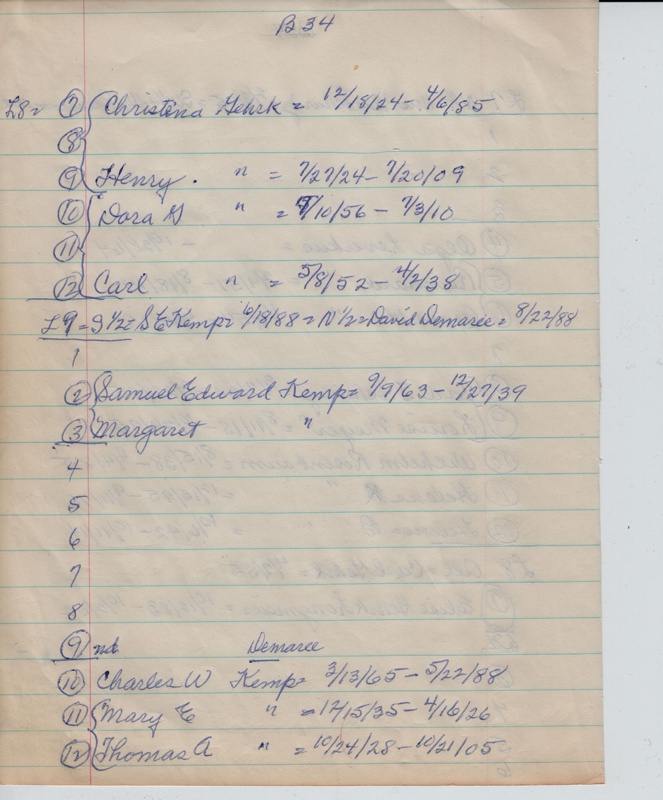 B 34
L8 = 7 Christena Gehrk = 12/18/24 - 4/6/85
8
9 Henry. " = 7/27/24 - 7/20/09
10 Dora G " = 9/10/56 - 7/3/10
11
12 Carl " = 5/8/52 - 4/2/38
L9 = S 1/2 = S E Kemp = 6/18/88 = N 1/2 = David Demaree = 8/22/88
1
2 Samuel Edward Kemp = 9/9/63 - 12/27/39
3 Margaret "
4
5
6
7
8
9 nd Demaree
10 Charles W Kemp = 3/13/65 - 5/22/88
11 Mary E " = 12/15/35 - 4/16/26
12 Thomas A " = 10/24/28 - 10/21/05